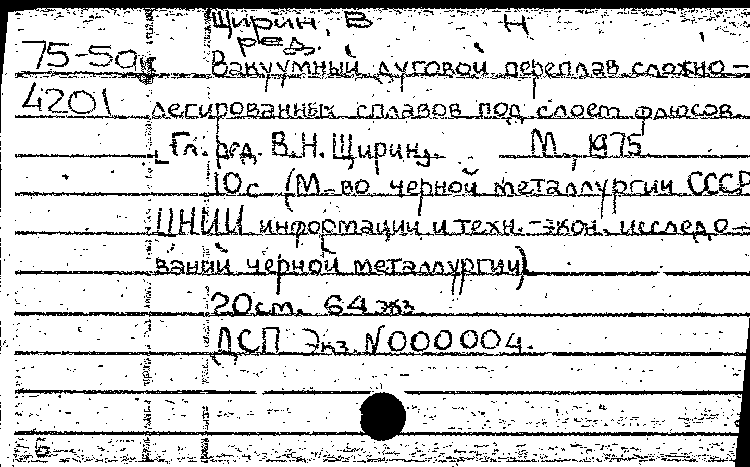 Щирин, В Н
ред.
75-5дк Вакуумный дуговой переплав сложно-
4201 легированных сплавов под слоем флюсов.
Гл. ред. В.Н. Щирин. М., 1975
10с (М-во черной металлургии СССР
ЦНИИ информации и техн.-экон. исследо-
ваний черной металлургии)
20см. 64 экз
ДСП Экз. N000004.